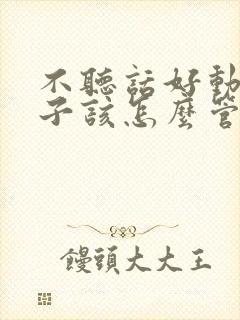 不聽話好動
子該怎麼管
饅頭大大王